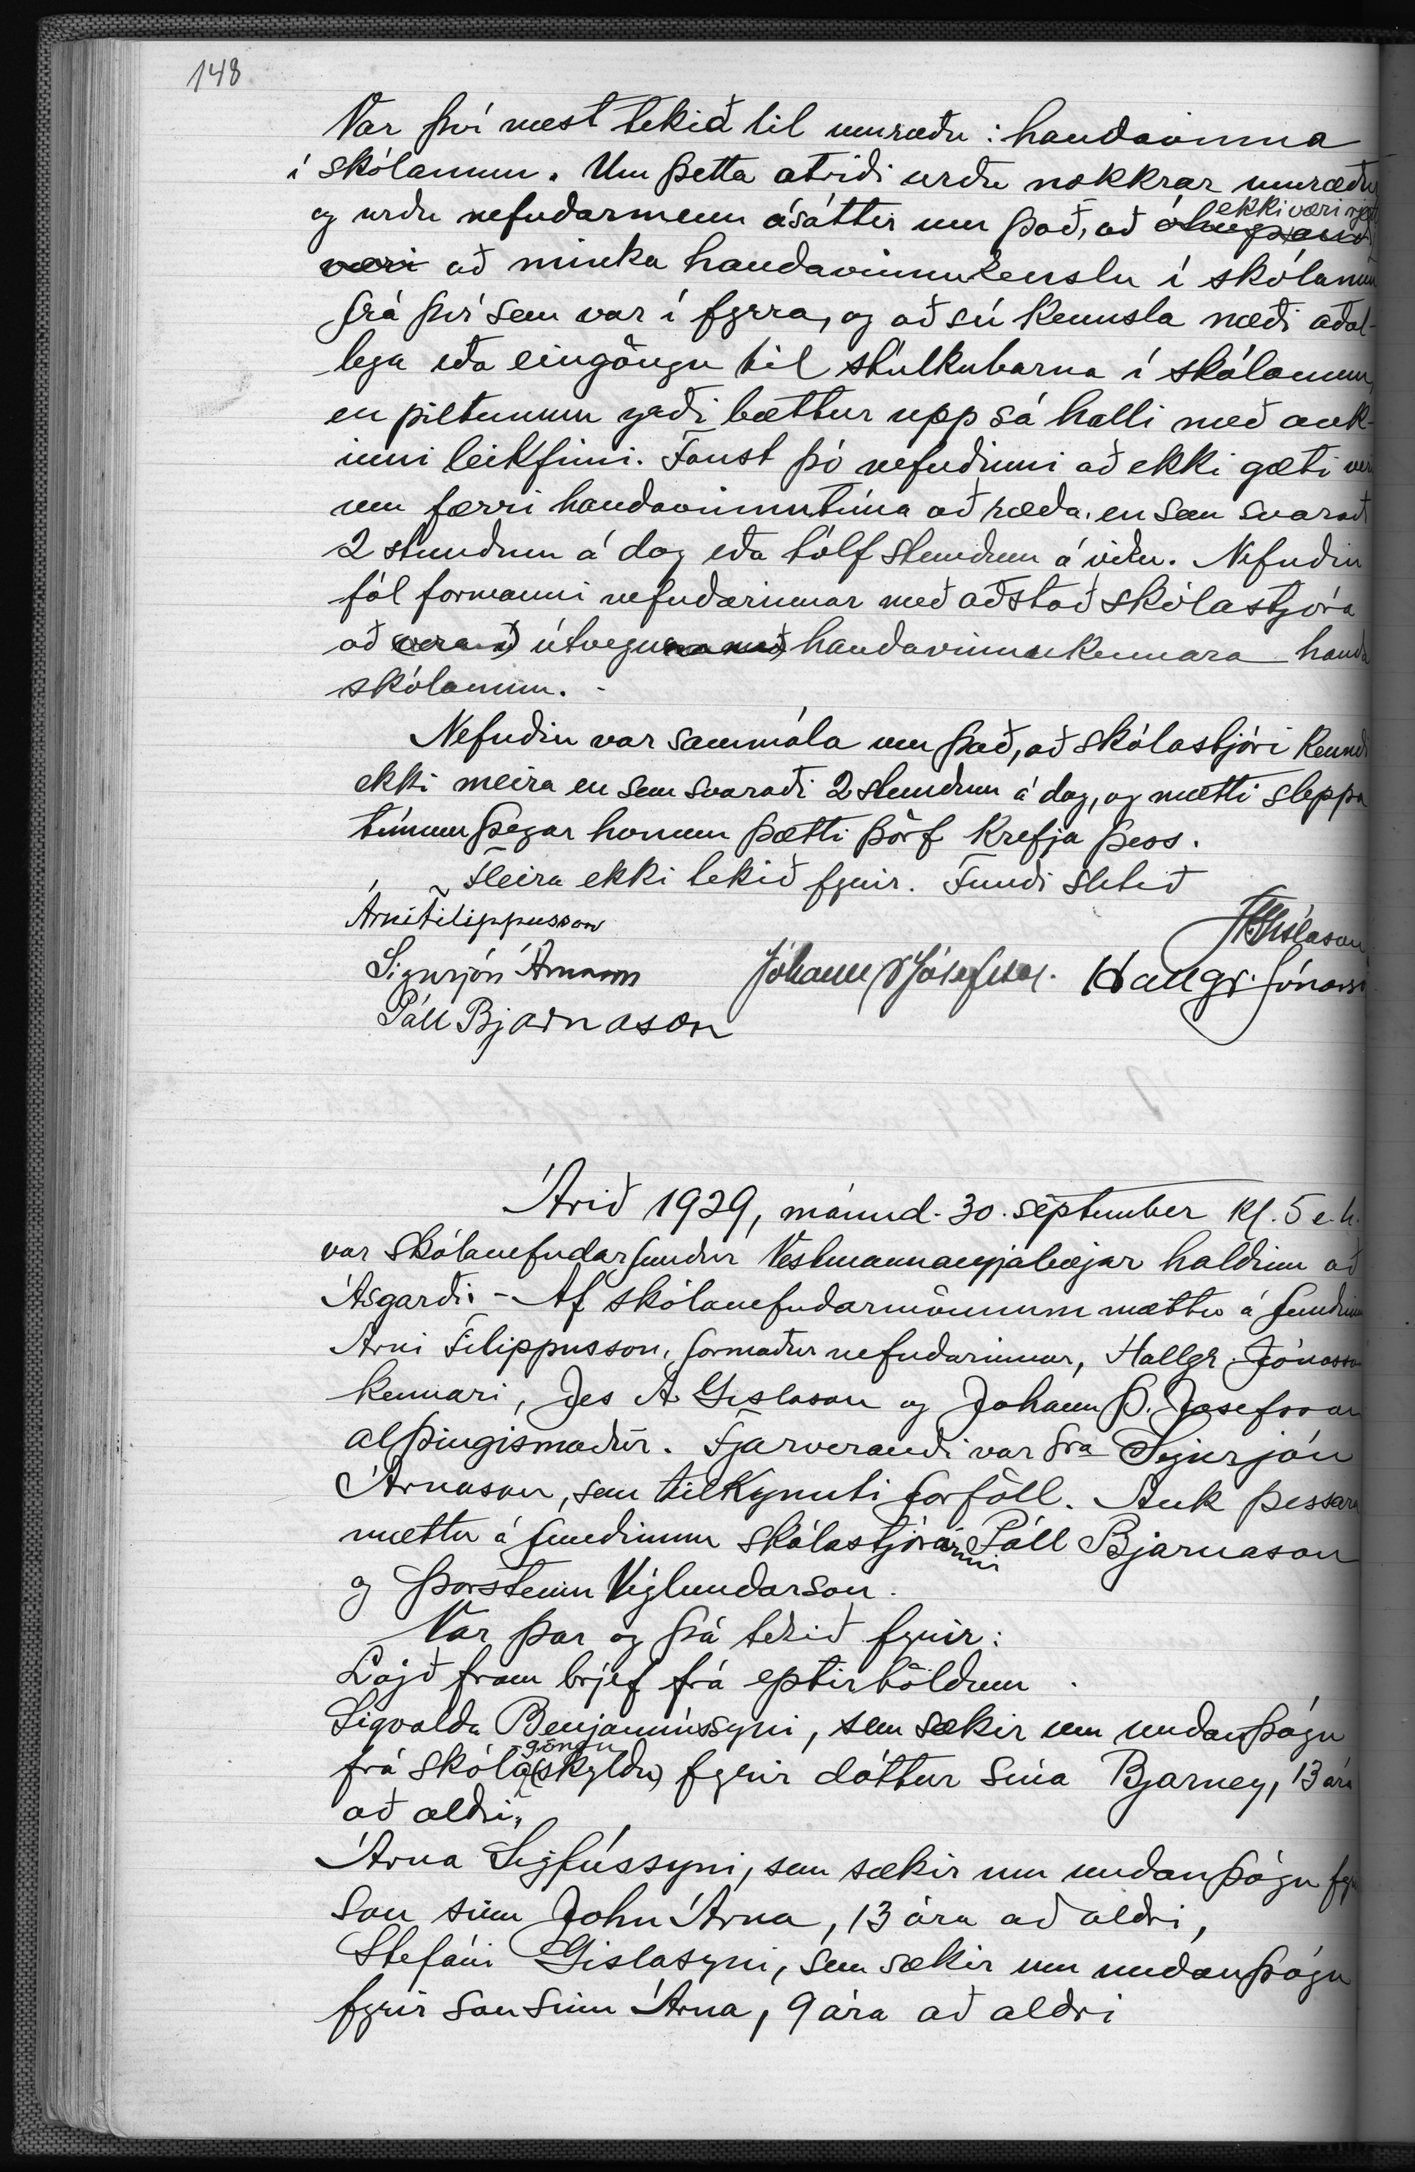 148
Var því næst tekið til umræðu: handavinna
í skólanum. Um þetta atriði urðu nokkrar umræður
og urðu nefndarmenn ásáttir um það, að ekki væri rjett
væri að minka handavinnukenslu í skólanum
frá því sem var í fyrra, og að sú kennsla næði aðal-
lega eða eingöngu til stúlkubarna í skólanum,
en piltunum yrði bættur upp sá halli með auk-
inni leikfimi. Fanst þó nefndinni að ekki gæti veri
um færri handavinnutíma að ræða, en sem svarað
2 stundum á dag eða tólf stundum á viku. Nefndin
fól formanni nefndarinnar með aðstoð skólastjóra
að útvega handavinnukennara handa
skólanum. -
Nefndin var sammála um það, að skólastjóri kenndi
ekki meira en sem svaraði 2 stundum á dag, og mætti sleppa
tímum þegar honum þætti þörf krefja þess.
Fleira ekki tekið fyrir. Fundi slitið
Árni Filippusson
JAGíslason
Sigurjón Árnason Jóhann Þ Jósefsson. Hallgr. Jónasso
Páll Bjarnason
Árið 1929, mánud. 30. september kl. 5 e.h.
var skólanefndarfundur Vestmannaeyjabæjar haldinn að
Ásgarði. - Af skólanefndarmönnum mættu á fundinum
Árni Filippusson, formaður nefndarinnar, Hallgr. Jónasso
kennari, Jes A Gíslason og Johann Þ. Josefsson
alþingismaður. Fjarverandi var sra Sigurjón
Árnason, sem tilkynnti forföll. Auk þessara
mættu á fundinum skólastjórarnir Páll Bjarnason
og Þorsteinn Víglundarson.
Var þar og þá tekið fyrir:
Lagð fram brjef frá eptirtöldum
Sigvalda Benjamínssyni, sem sækir um undanþágu
frá skólagöngu (skyldu) fyrir dóttur sína Bjarney, 13 ára
að aldri,
Árna Sigfússyni, sem sækir um undanþágu fyr
son sinn John Árna, 13 ára að aldri,
Stefáni Gislasyni, sem sækir um undanþágu
fyrir son sinn Árna, 9 ára að aldri